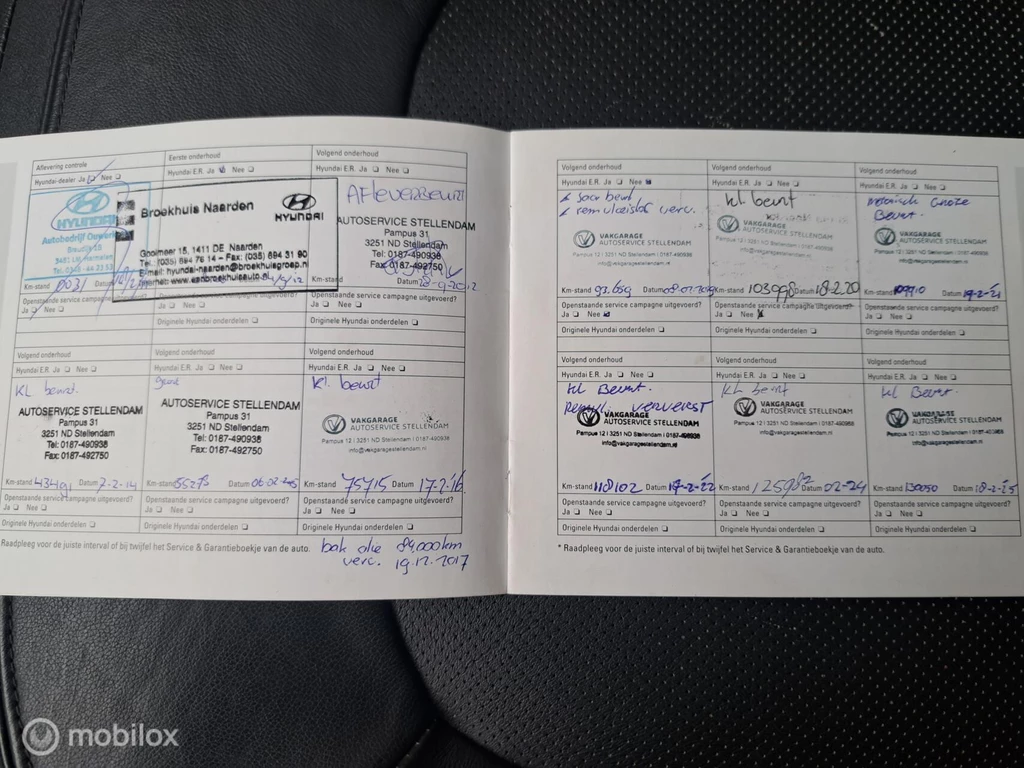 Aflevering controle
Hyundai-dealer Ja Nee
HYUNDAI
Eerste onderhoud
Hyundai E.R. Ja Nee
Broekhuis Naarden
HYUNDAI
Gooimeer 15, 1411 DE Naarden
Tel. (035) 694 76 14 - Fax: (035) 694 31 90
E-mail: hyundai-naarden@broekhuisgroep.nl
Km-stand Datum
Openstaande service campagne uitgevoerd?
Ja Nee
Volgend onderhoud
Hyundai E.R. Ja Nee
AUTOSERVICE STELLENDAM
Pampus 31
3251 ND Stellendam
Tel: 0187-490938
Fax: 0187-492750
Km-stand Datum 18-9-2012
Openstaande service campagne uitgevoerd?
Ja Nee
Originele Hyundai onderdelen
Volgend onderhoud
Hyundai E.R. Ja Nee
KL beurt.
AUTOSERVICE STELLENDAM
Pampus 31
3251 ND Stellendam
Tel: 0187-490938
Fax: 0187-492750
Km-stand 43491 Datum 7-2-14
Openstaande service campagne uitgevoerd?
Ja Nee
Originele Hyundai onderdelen
Volgend onderhoud
Hyundai E.R. Ja Nee
AUTOSERVICE STELLENDAM
Pampus 31
3251 ND Stellendam
Tel: 0187-490938
Fax: 0187-492750
Km-stand 55273 Datum
Openstaande service campagne uitgevoerd?
Ja Nee
Originele Hyundai onderdelen
Volgend onderhoud
Hyundai E.R. Ja Nee
Kl. beurt
VAKGARAGE
AUTOSERVICE STELLENDAM
Pampus 12 | 3251 ND Stellendam | 0187-490938
info@vakgaragestellendam.nl
Km-stand 75715 Datum 17-2-'16
Openstaande service campagne uitgevoerd?
Ja Nee
Originele Hyundai onderdelen
Raadpleeg voor de juiste interval of bij twijfel het Service & Garantieboekje van de auto.
bak olie 84,000km
verv. 19.12.2017
Volgend onderhoud
Hyundai E.R. Ja Nee
VAKGARAGE
AUTOSERVICE STELLENDAM
info@vakgaragestellendam.nl
Km-stand 93.659 Datum
Openstaande service campagne uitgevoerd?
Ja Nee
Originele Hyundai onderdelen
Volgend onderhoud
Hyundai E.R. Ja Nee
Kl beurt
VAKGARAGE
AUTOSERVICE STELLENDAM
Km-stand 103998 Datum 18-2.20
Openstaande service campagne uitgevoerd?
Ja Nee
Originele Hyundai onderdelen
Volgend onderhoud
Hyundai E.R. Ja Nee
Beurt.
VAKGARAGE
AUTOSERVICE STELLENDAM
info@vakgaragestellendam.nl
Km-stand Datum
Openstaande service campagne uitgevoerd?
Ja Nee
Originele Hyundai onderdelen
Volgend onderhoud
Hyundai E.R. Ja Nee
Kl Beurt.
VAKGARAGE
AUTOSERVICE STELLENDAM
Pampus 12 | 3251 ND Stellendam | 0187-490938
info@vakgaragestellendam.nl
Km-stand 118102 Datum 17-2-'22
Openstaande service campagne uitgevoerd?
Ja Nee
Originele Hyundai onderdelen
Volgend onderhoud
Hyundai E.R. Ja Nee
KL beurt
VAKGARAGE
AUTOSERVICE STELLENDAM
Pampus 12 | 3251 ND Stellendam | 0187-490938
info@vakgaragestellendam.nl
Km-stand 125982 Datum 02-24
Openstaande service campagne uitgevoerd?
Ja Nee
Originele Hyundai onderdelen
Volgend onderhoud
Hyundai E.R. Ja Nee
Kl Beurt.
VAKGARAGE
AUTOSERVICE STELLENDAM
info@vakgaragestellendam.nl
Km-stand 130050 Datum 18-2-'25
Openstaande service campagne uitgevoerd?
Ja Nee
Originele Hyundai onderdelen
* Raadpleeg voor de juiste interval of bij twijfel het Service & Garantieboekje van de auto.
mobilox